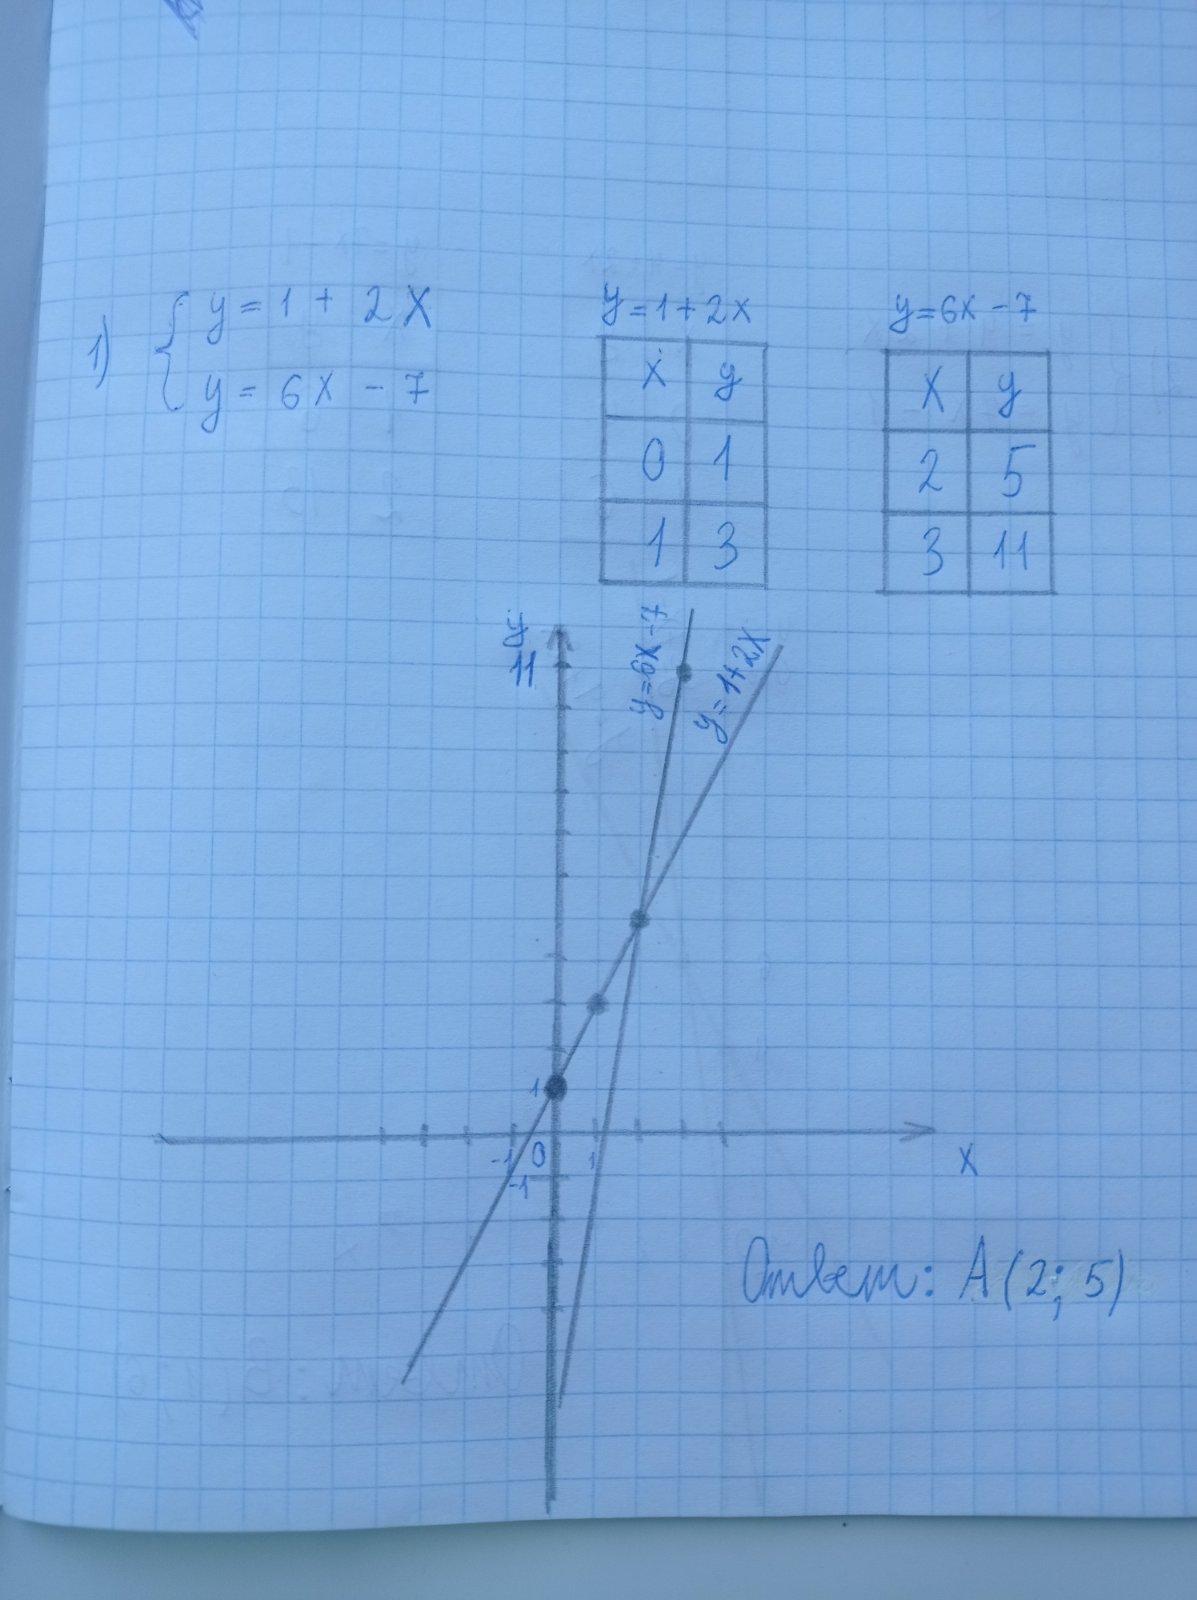 1) { y = 1 + 2x
y = 6x - 7
y = 1 + 2x
x y
0 1
1 3
y = 6x - 7
x y
2 5
3 11
y
11
y = 6x - 7
y = 1 + 2x
1
-1 0 1
-1
x
Ответ: A (2; 5)